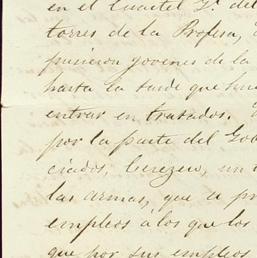 en el Cuartel Gl. del
torres de la Profesa,
pusieron jovenes de la
hasta la tarde que
entrar en tratados.
por la parte del Gob
ciados, Cerezero, un
las armas, que a pr
empleos á los que los
que por sus empleos